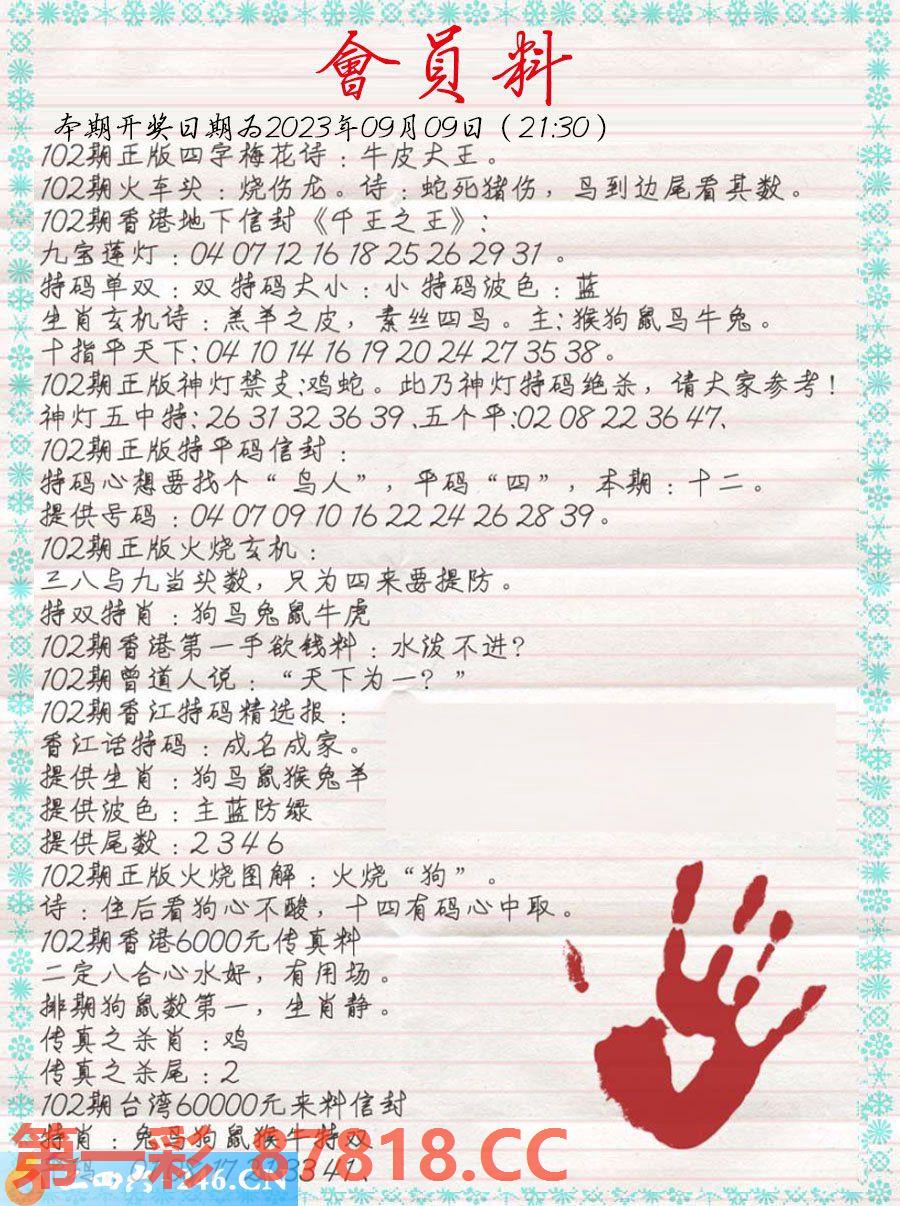 會員料
本期开奖日期为2023年09月09日（21:30）
102期正版四字梅花诗：牛皮大王。
102期火车头：烧伤龙。诗：蛇死猪伤，鸟到边尾看其数。
102期香港地下信封《千王之王》：
九宝莲灯：04 07 12 16 18 25 26 29 31 。
特码单双：双 特码大小：小 特码波色：蓝
生肖玄机诗：羔羊之皮，素丝四鸟。主：猴狗鼠鸟牛兔。
十指平天下：04 10 14 16 19 20 24 27 35 38。
102期正版神灯禁支：鸡蛇。此乃神灯特码绝杀，请大家参考！
神灯五中特：26 31 32 36 39、五个平：02 08 22 36 47、
102期正版特平码信封：
特码心想要找个“鸟人”，平码“四”，本期：十二。
提供号码：04 07 09 10 16 22 24 26 28 39。
102期正版火烧玄机：
三八与九当头数，只为四来要提防。
特双特肖：狗鸟兔鼠牛虎
102期香港第一手欲钱料：水泼不进？
102期曾道人说：“天下为一？”
102期香江特码精选报：
香江话特码：成名成家。
提供生肖：狗鸟鼠猴兔羊
提供波色：主蓝防绿
提供尾数：2 3 4 6
102期正版火烧图解：火烧“狗”。
诗：住后看狗心不酸，十四有码心中取。
102期香港6000元传真料
二定八合心水好，有用场。
排期狗鼠数第一，生肖静。
传真之杀肖：鸡
传真之杀尾：2
102期台湾60000元来料信封
特肖：兔鸟狗鼠猴牛特双
第一彩 87818.CC
33 41、
246.CN